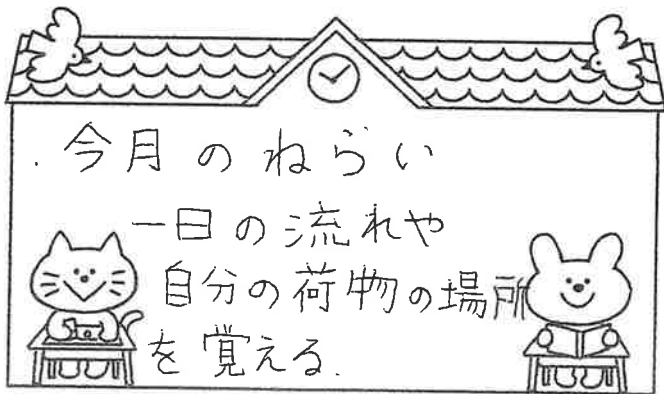 ・今月のねらい
一日の流れや
自分の荷物の場所
を覚える.